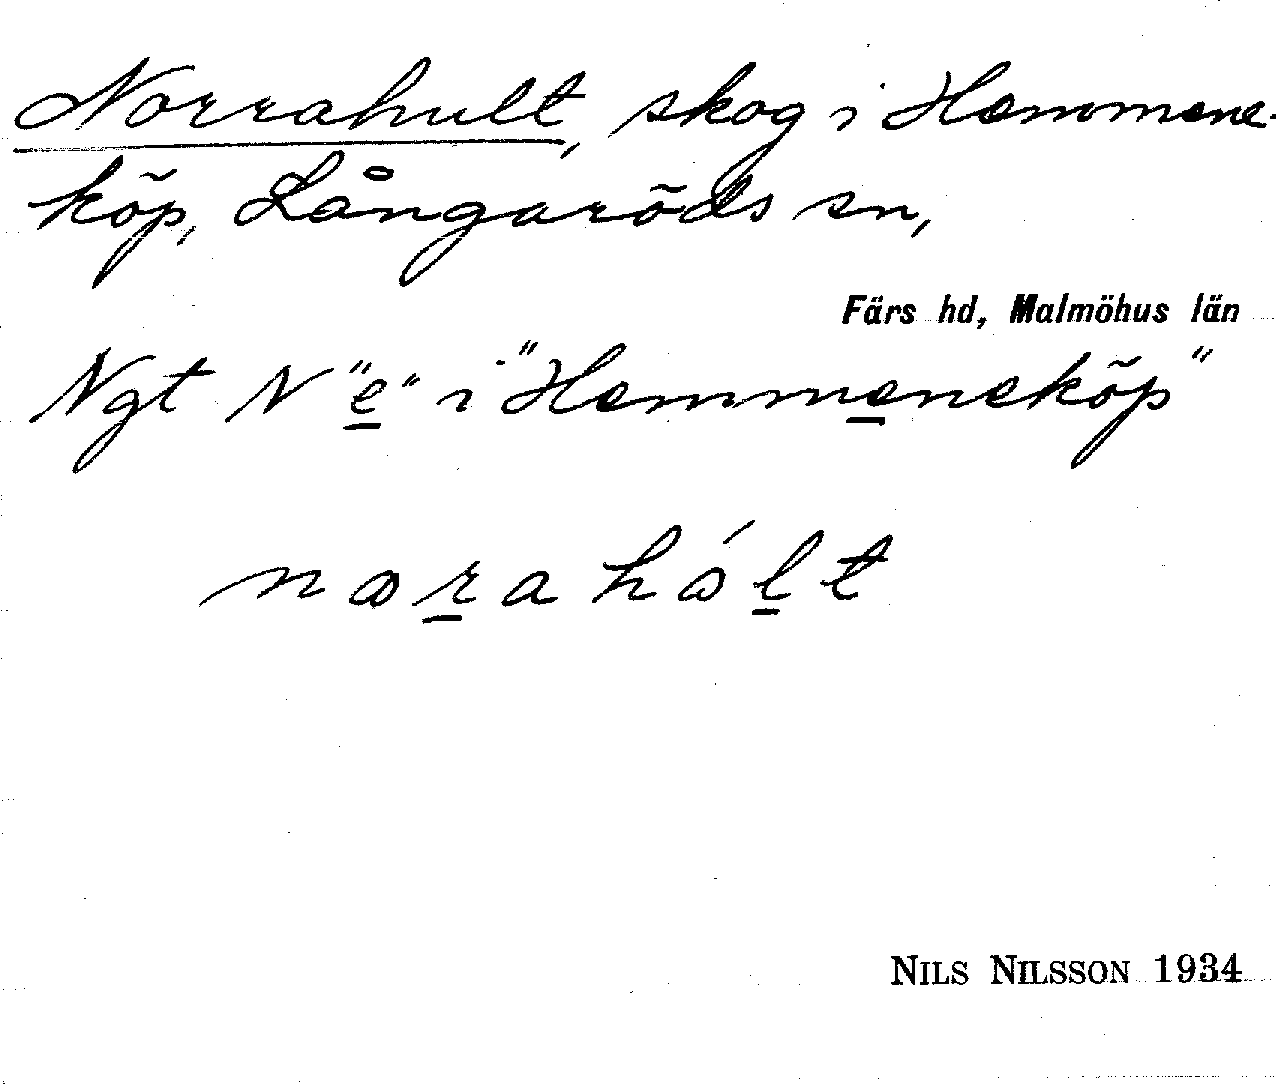 Norrahult, skog i Hemmene-
köp, Långaröds sn,
Färs hd, Malmöhus län
Ngt N "e" i "Hemmeneköp"
nɷrahɷ́lt
NILS NILSSON 1934